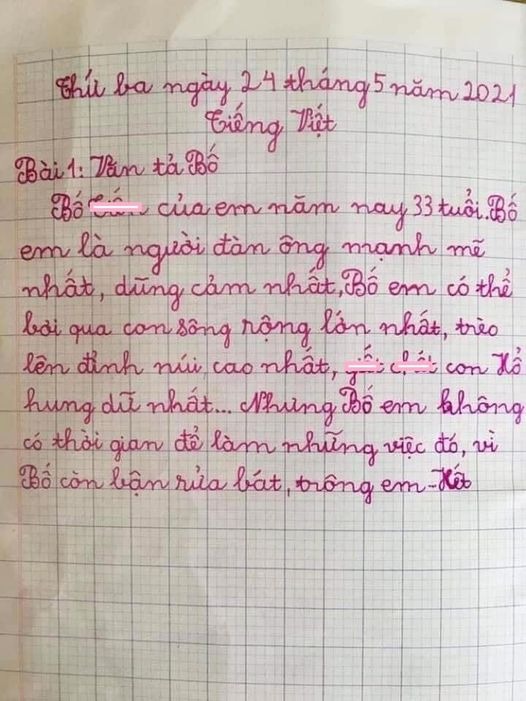 Thứ ba ngày 24 tháng 5 năm 2021
Tiếng Việt
Bài 1: Văn tả Bố
Bố của em năm nay 33 tuổi. Bố
em là người đàn ông mạnh mẽ
nhất, dũng cảm nhất, Bố em có thể
bơi qua con sông rộng lớn nhất, trèo
lên đỉnh núi cao nhất, con Hổ
hung dữ nhất... Nhưng Bố em không
có thời gian để làm những việc đó, vì
Bố còn bận rửa bát, trông em - Hết